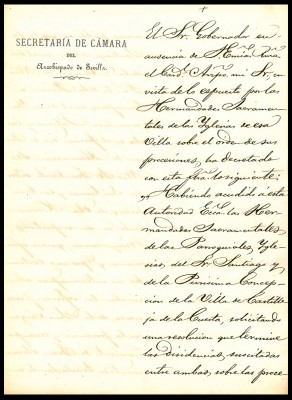 SECRETARÍA DE CÁMARA
DEL
Arzobispado de Sevilla.
El Sr. Gobernador en
ausencia de Emin. Rma.
el Card. Arzpo. mi Sr, en
vista de lo espuesto por las
Hermandades Sacramen-
tales de las Yglesias de esa
Villa sobre el orden de sus
procesiones, ha decretado
con esta fha. lo siguiente;
"Habiendo acudido á esta
Autoridad Ecca. las Her-
mandades Sacramentales
de las Parroquiales, Ygle-
sias, del Sr. Santiago y
de la Purisima Concep-
ción de la Villa de Castille-
ja de la Cuesta, solicitando
una resolucion que termine
las disidencias, suscitadas
entre ambas, sobre las proce